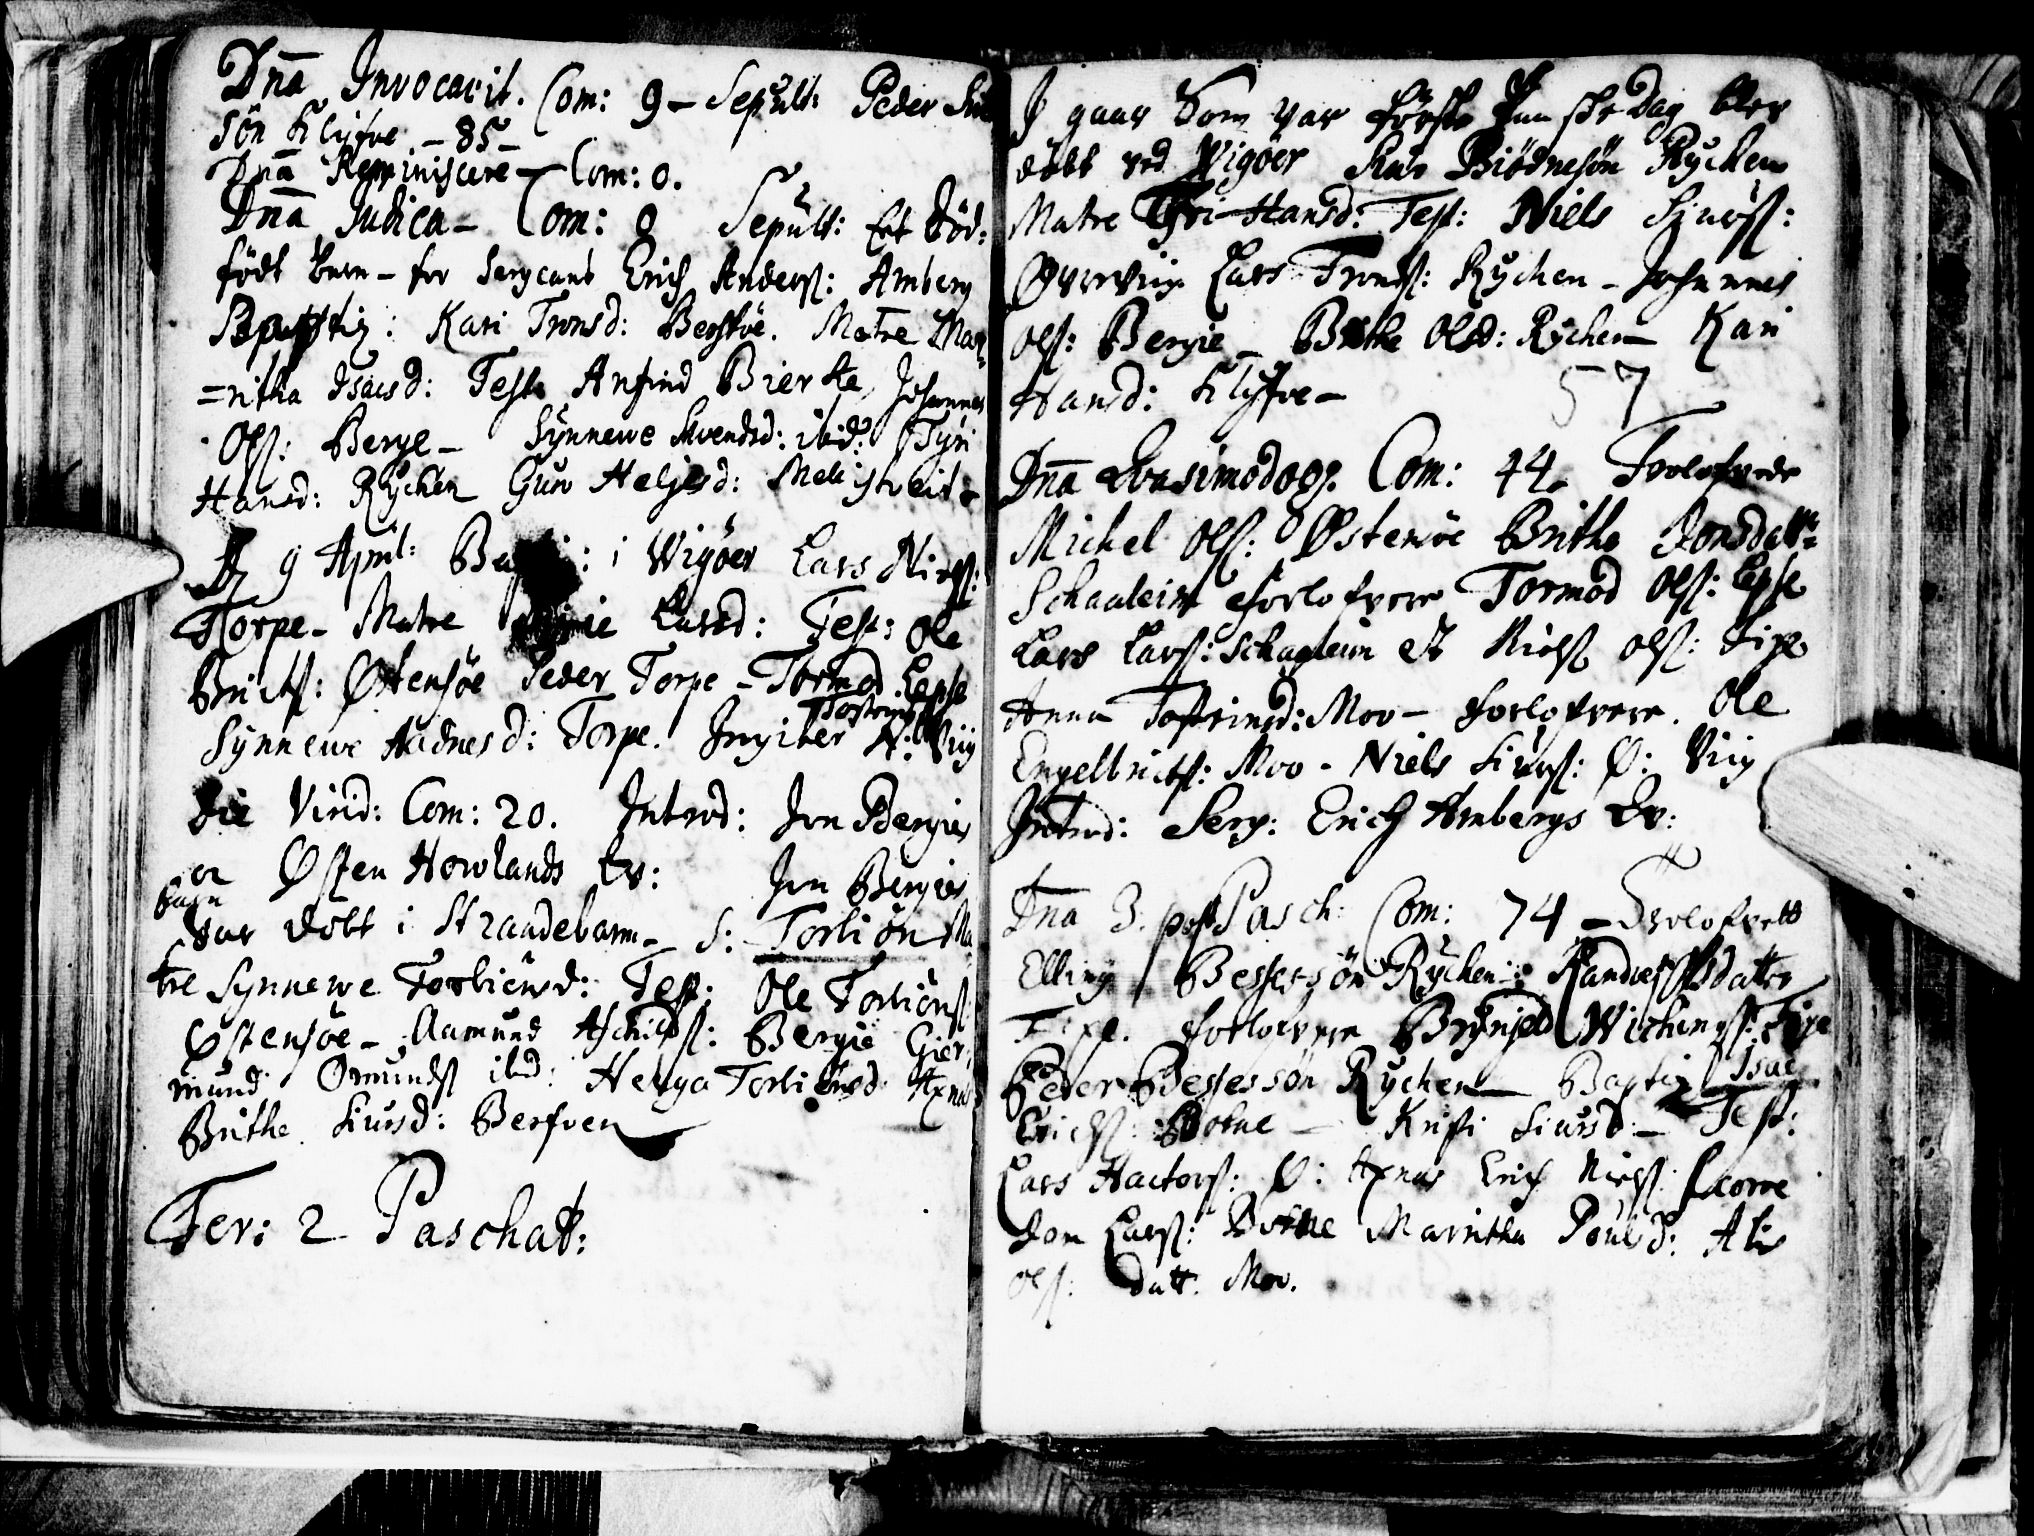 Dnā Invocavit. Com: 9 – Sepult: Peder
sön Klyfve – 85 –
Dnā Reminiscere – Com: 0.
Dnā Judica – Com: 0 Sepult: Et död:
födt barn – for Sergeant Erich Anders: Amberg
Baptiz: Kari Tronsd: Berfve. Matre Mar
=nitha Isacsd: Test: Anfind Bierke, Johannes
Ols: Berge – Synnewe Svendsd: ibid: Tyri
Hansd: Rychen Guro Helgesd:
D 9 April: i Wigöer Lars Niels:
Torpe – Matre Larsd: Test: Ole
Brichs: Östensöe Peder Torpe – Tormod Lepse
Synnewe Aadnesd: Torpe. Ingiber Tostens N: Viig
Die Virid: Com: 20. Introd: Jon Bergies
oc Östen Howlands Qv: Jon Bergies
barn
var döbt i Strandebarm – S: Torbiön Ma
tre Synnewe Torbiönsd: Test: Ole Torbiöns:
Östensöe – Aamund Aschilds: Bergie Gier
mund Omunds ibid: Helga Torbiönsd: Axnes
Brithe Siursd: Berfven
Fer: 2 Paschat:
I gaar som var förste Paaske Dag blev
döbt ved Vigöer Kari Biörnesön Rychen
Matre Tyri Hansd: Test: Niels Siurs:
Öfverviig Lars Tronds: Rychen – Johannes
Ols: Bergie – Brithe Olsd: Rychen – Kari
Hansd: Klyfve –
57
Dnā Qvasimodog. Com: 44. Trolofvede
Michel Ols: Östensöe Brithe Jonsdatt:
Schaaleim Forlofvere Tormod Ols: Lepse
Lars Lars: Schaaleim Et Niels Ols: Fixe
Anna Tostensd: Moo – Forlofvere. Ole
Engelbricts: Moo – Niels Siurs: Ö: Viig
Introd: Serg: Erich Ambergs Qv:
Dnā 3. post Pasch: Com: 74 – Trolofvett
Elling Bessesön Rychen: Randi datter
Fixe. Forlofvere Brynild Wichings: Fixe
Peder Bessessön Rychen – Baptiz Isac
Erichs: Botne – Kristi Siursd: – Test:
Lars Hactors: Ö: Axnes Erich Niels: Scorve
Jon Lars: Botne Marritha Poulsd: Alis
Ols: datt: Moo.